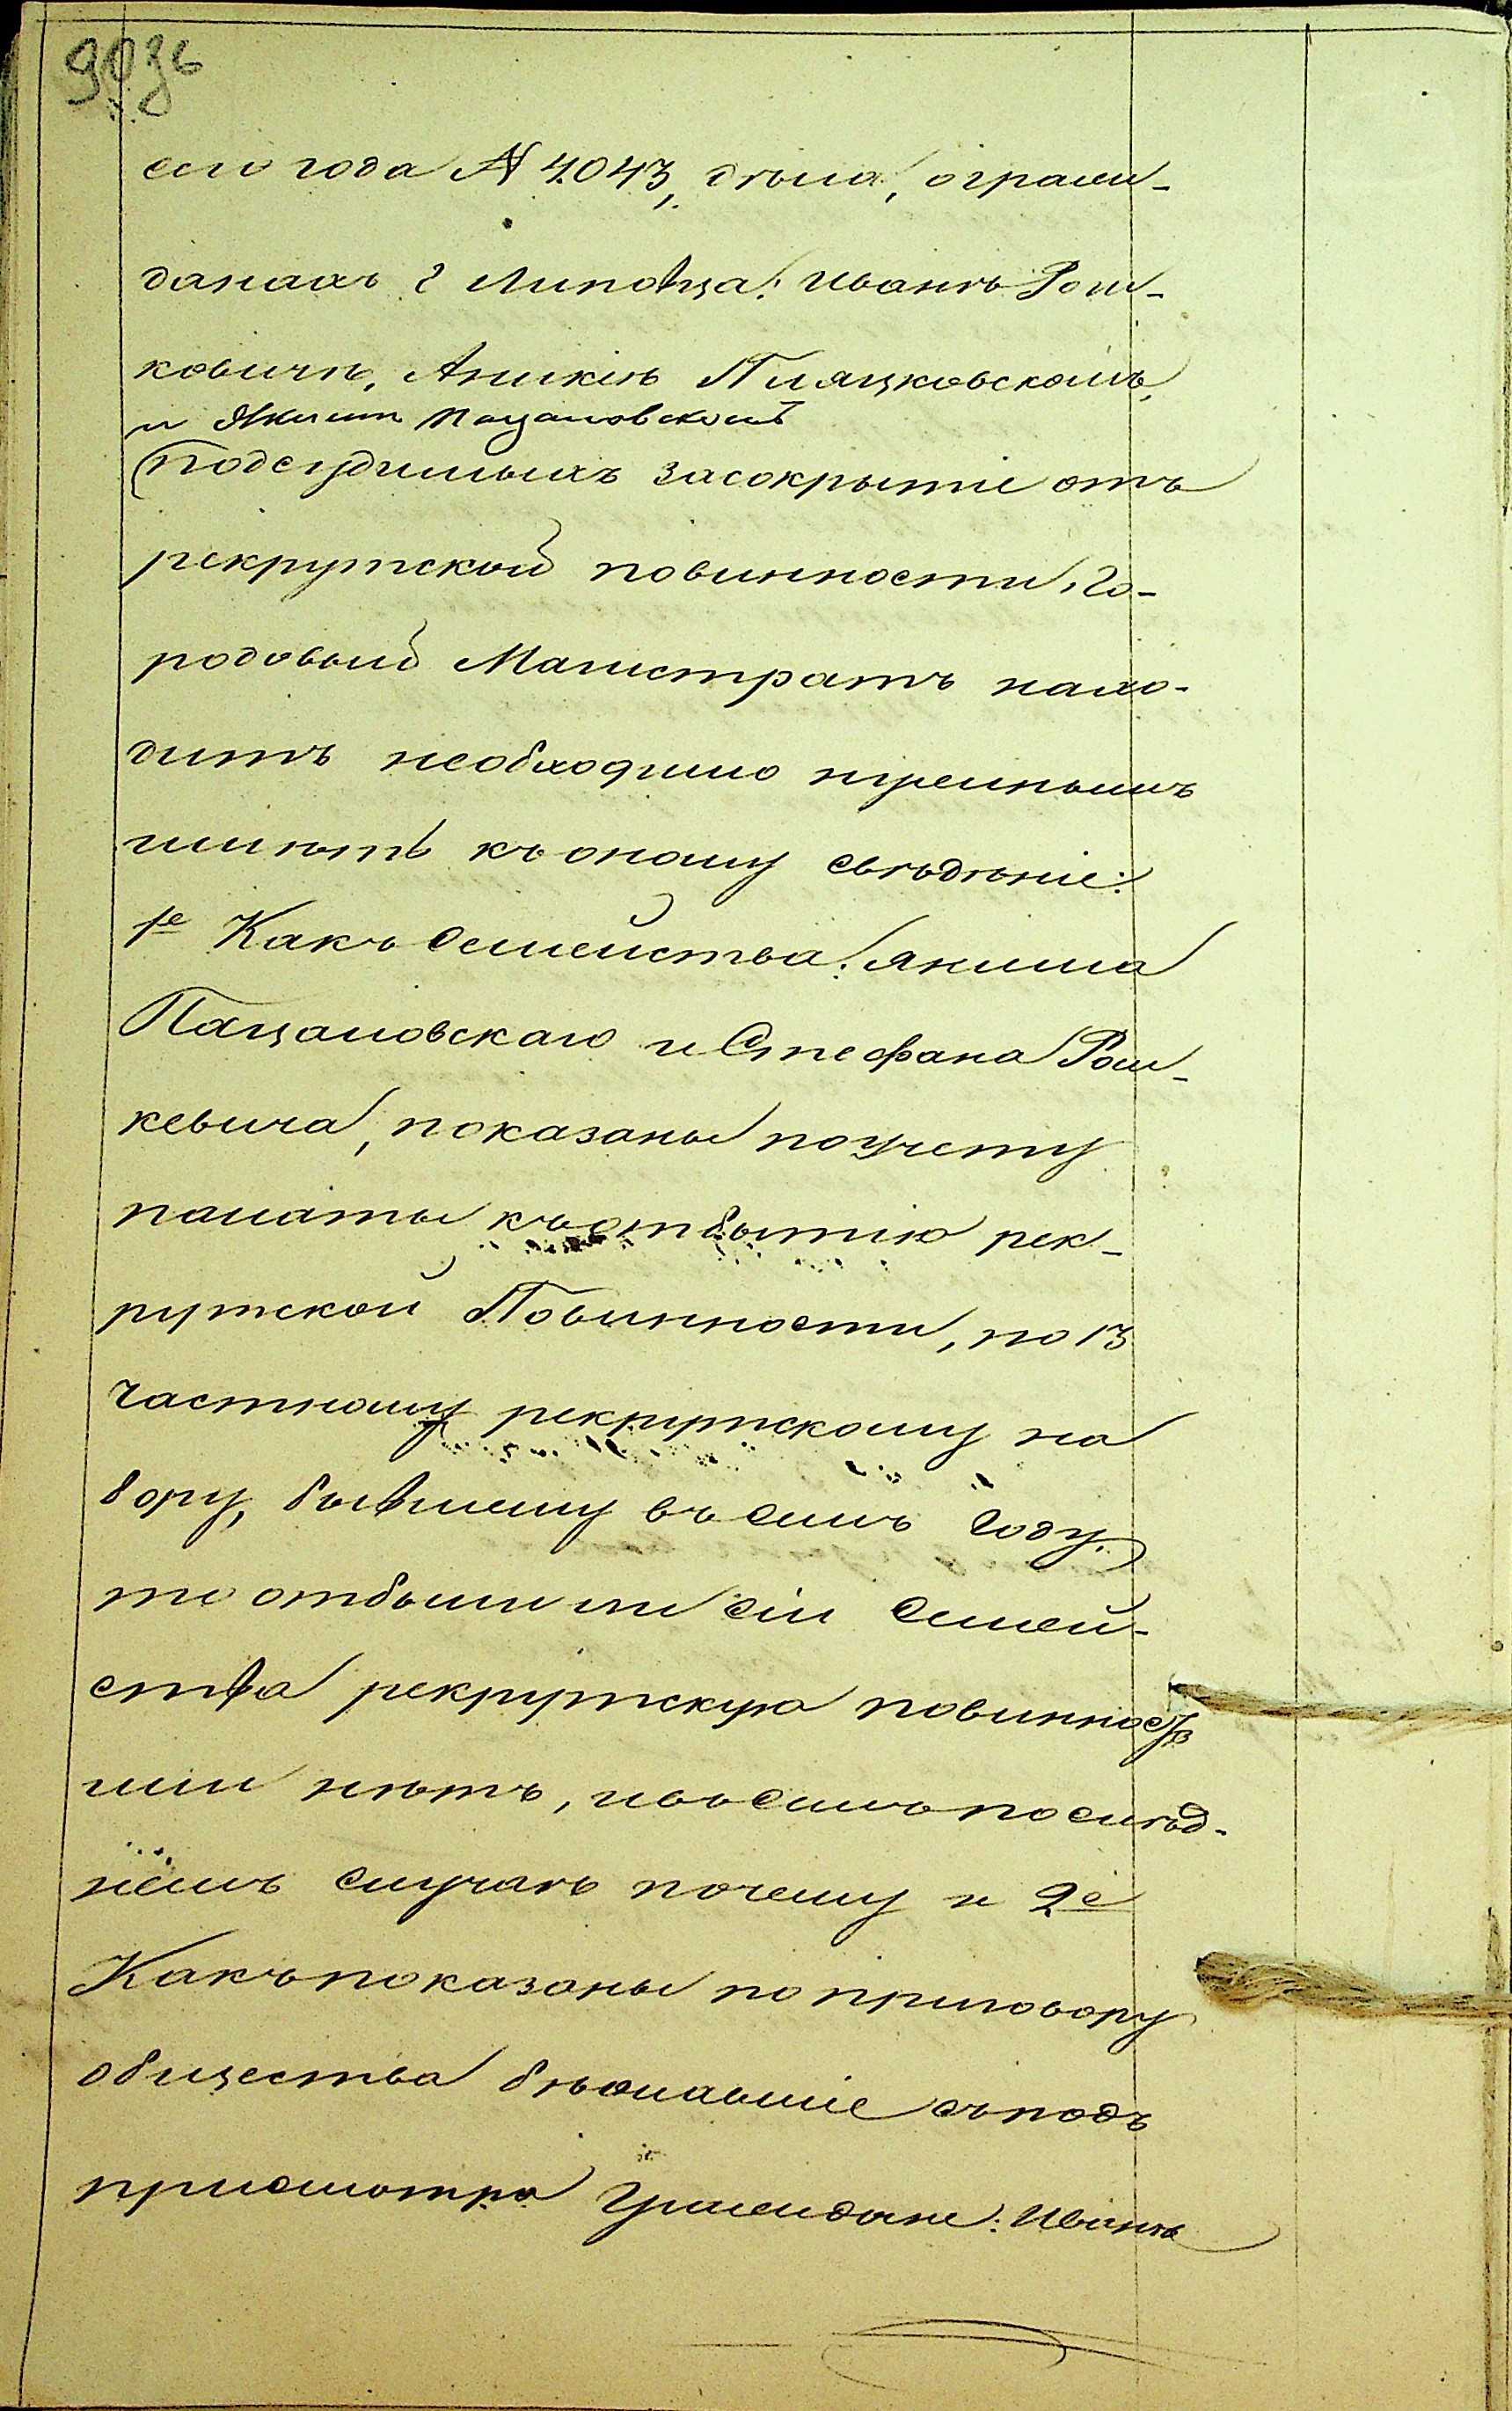 90 зв
сего года № 4043, дѣла, о граж-
данахъ г Липовца: Иванѣ Рош-
ковичѣ, Аникiѣ Пляцковскомъ,
и Якимѣ Пацановскомъ
подсудимыхъ за сокрытiе отъ
рекрутской повинности, Го-
родовый Магистратъ нахо-
дитъ необходимо нужнымъ
имѣть къ оному свѣдѣнiе:
1е Какъ семейства: Якима
Пацановскаго и Стефана Рош-
кевича, показаны по учету
палаты къ отбытiю рек-
рутской Повинности, по 13
частному рекрутскому на
бору, бывшему въ семъ году,
то отбыли ли сiи семей-
ства рекрутскую повинность
или нѣтъ, и въ семъ послѣд-
немъ случаѣ почему и 2е
Какъ показаны по приговору
общества бѣжавшiе съ подъ
присмотра Граждане: Иванъ